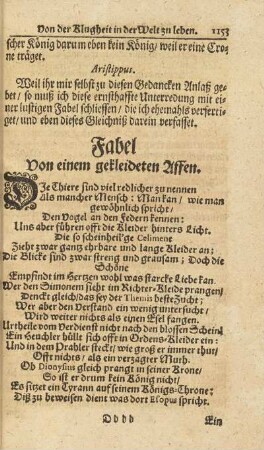 Von der Klugheit in der Welt zu leben. 1153
scher König darum eben kein König/ weil er eine Cro-
ne träget.
Aristippus.
Weil ihr mir selbst zu diesen Gedancken Anlaß ge-
bet/ so muß ich diese ernsthaffte Unterredung mit ei-
ner lustigen Fabel schliessen/ die ich ehemahls verferti-
get/ und eben dieses Gleichniß darein verfasset.
Fabel
Von einem gekleideten Affen.
DJe Thiere sind viel redlicher zu nennen
Als mancher Mensch: Man kan/ wie man
gewöhnlich spricht/
Den Vogel an den Federn kennen:
Uns aber führen offt die Kleider hinters Licht.
Die so scheinheil'ge Celimene
Zieht zwar gantz ehrbare und lange Kleider an;
Die Blicke sind zwar streng und grausam; Doch die
Schöne
Empfindt im Hertzen wohl was starcke Liebe kan.
Wer den Simonem sieht im Richter-Kleide prangen/
Denckt gleich/ das sey der Themis beste Zucht;
Wer aber den Verstand ein wenig untersucht/
Wird weiter nichts als einen Esel fangen.
Urtheile vom Verdienst nicht nach den blossen Schein!
Ein Heuchler hüllt sich offt in Ordens-Kleider ein:
Und in dem Prahler steckt/ wie groß er immer thut/
Offt nichts/ als ein verzagter Muth.
Ob Dionysius gleich prangt in seiner Krone/
So ist er drum kein König nicht/
Es sitzet ein Tyrann auf seinem Königs-Throne;
Diß zu beweisen dient was dort Esopus spricht.
Dddd Ein